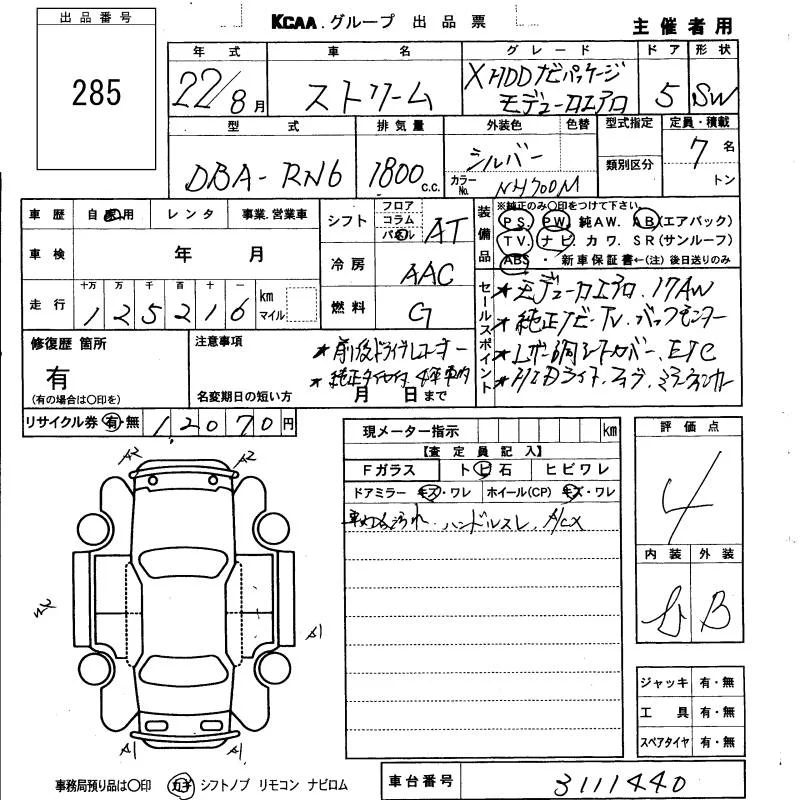 出品番号
285
KCAA.グループ 出品票
主催者用
年式 車名 グレード ドア 形状
22/8月 ストリーム XHDDナビパッケージ モデューロエアロ 5 SW
型式 排気量 外装色 色替 型式指定 定員・積載
DBA-RN6 1800c.c. シルバー カラーNo. NH700M 類別区分 7名 トン
車歴 自家用 レンタ 事業.営業車
車検 年 月
走行 十万 万 千 百 十 一
1 2 5 2 1 6 km マイル
シフト フロア コラム パネル AT
冷房 AAC
燃料 G
装備品 ※純正のみ〇印をつけて下さい
PS. PW. 純AW. AB(エアバック)
TV. ナビ. カワ. SR(サンルーフ)
ABS ・ 新車保証書←(注)後日送りのみ
セールスポイント
★モデューロエアロ.17AW
★純正ナビ-TV.バックモニター
修復歴 箇所
有
(有の場合は〇印を)
注意事項
★前後ドライブレコーダー
名変期日の短い方 月 日まで
リサイクル券 有・無 1,2070円
現メーター指示 km
【査定員記入】
Fガラス トビ石 ヒビワレ
ドアミラー キズ・ワレ ホイール(CP) キズ・ワレ
ハンドルスレ.
評価点
4
内装 外装
B
A2 A2
A1
A1 A1
ジャッキ 有・無
工具 有・無
スペアタイヤ 有・無
事務局預り品は〇印 カギ シフトノブ リモコン ナビロム
車台番号 3111440